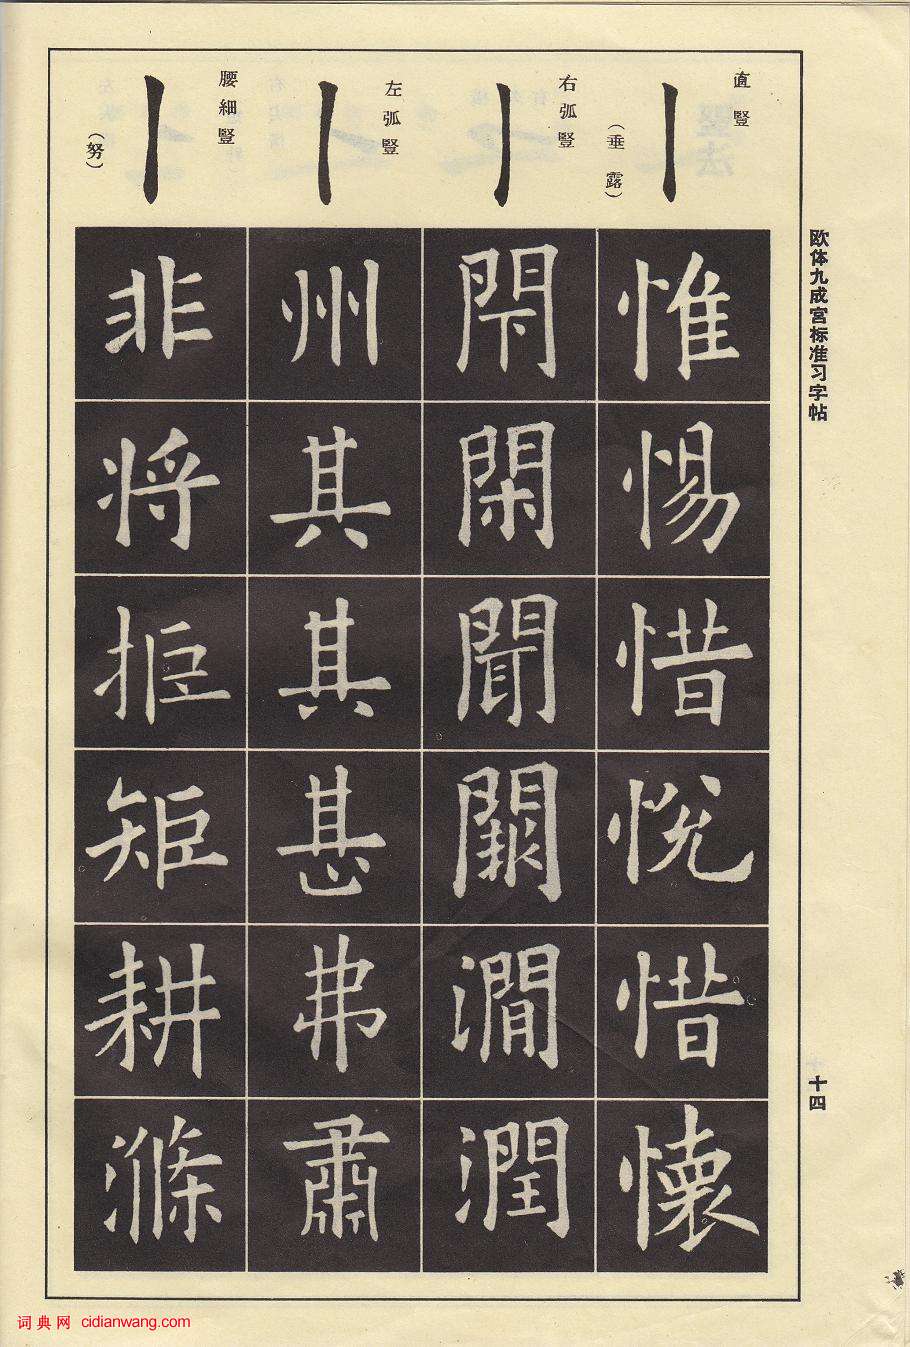 欧体九成宫标准习字帖
十四
直豎
（垂露）
惟惕惜悦惜懷
右弧豎
閇閑聞闕澗潤
左弧豎
州其其甚弗肅
腰細豎
（努）
非将拒矩耕滌
词典网 cidianwang.com